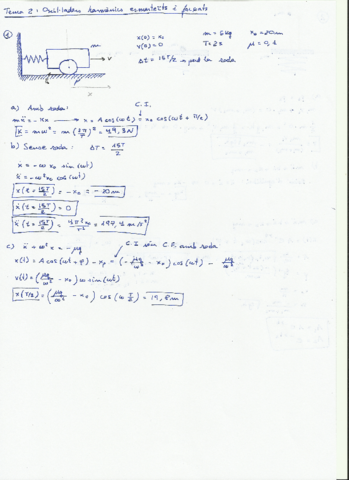 Tema 2: Oscil·ladors harmònics esmorteïts i forçats
①
m
x(0) = x₀
v(0) = 0
m = 5 kg
T = 2 s
x₀ = 20 m
μ = 0,1
Δt = 15T/2
roda
a) Amb roda:
C.I.
mẍ = -kx → x = A cos(ωt
= x₀ cos(ωt + π/2)
K = mω² = m(2π/T)² = 49,3 N
b) Sense roda: ΔT = 15T/2
x = -ω x₀ sin(ωt)
ẍ = -ω² x₀ cos(ωt)
x(t = 15T/2) = -x₀ = -20 m
ẋ(t = 15T/2) = 0
ẍ(t = 15T/2) = 4π² x₀/T² = 197,4 m s⁻²
c) ẍ + ω² x = -μg
C.I. sin C.F. amb roda
x(t) = A cos(ωt + φ) - xₚ = (-μg/ω² - x₀) cos(ωt) - μg/ω²
ẋ(t) = (μg/ω² - x₀) ω sin(ωt)
x(T/2) = (μg/ω² - x₀) cos(ω T/2) = 19,8 m